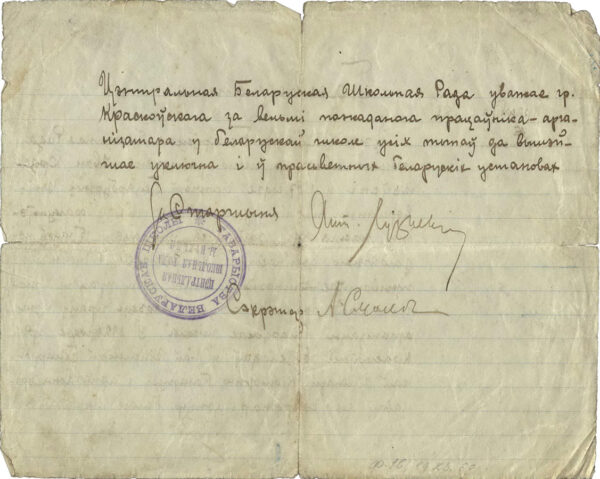 Цэнтральная Беларуская Школьная Рада уважае гр.
Красноўскага за вельмі пожаданага працаўніка-арга-
нізатара у беларускай школе усіх тыпаў да вышэй-
шае уключна і ў прасветных беларускіх установах
Старшыня
Ант. Луцкевіч
ТАВАРЫСТВА БЕЛАРУСКАЕ ШКОЛЫ
ЦЕНТРАЛЬНАЯ
ШКОЛЬНАЯ РАДА
Сэкрэтар